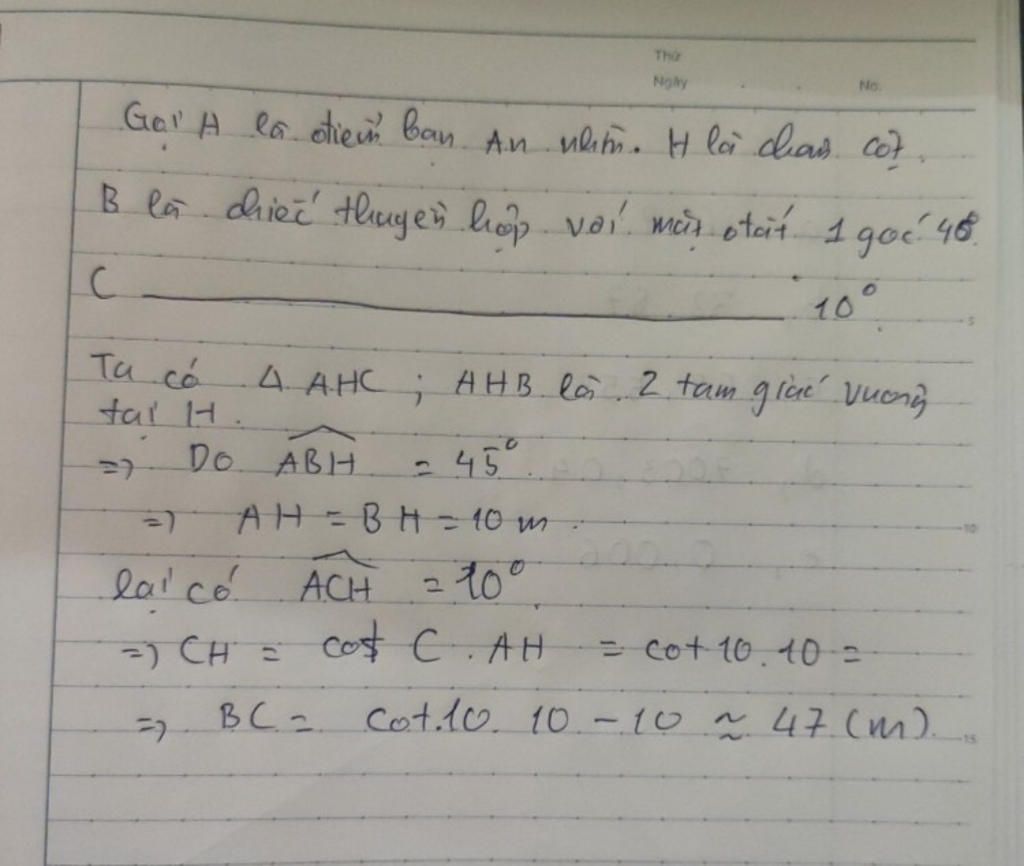 Thứ
Ngày . . No.
Gọi A là điểm bạn An nhìn. H là chân cột.
B là chiếc thuyền hợp với mặt đất 1 góc 45
C ——————— 10°
Ta có Δ AHC ; AHB là 2 tam giác vuông
tại H.
=> Do ABH = 45°.
=> AH = BH = 10 m.
lại có ACH = 10°
=> CH = cot C . AH = cot 10 . 10 =
=> BC = cot.10. 10 - 10 ≈ 47 (m).